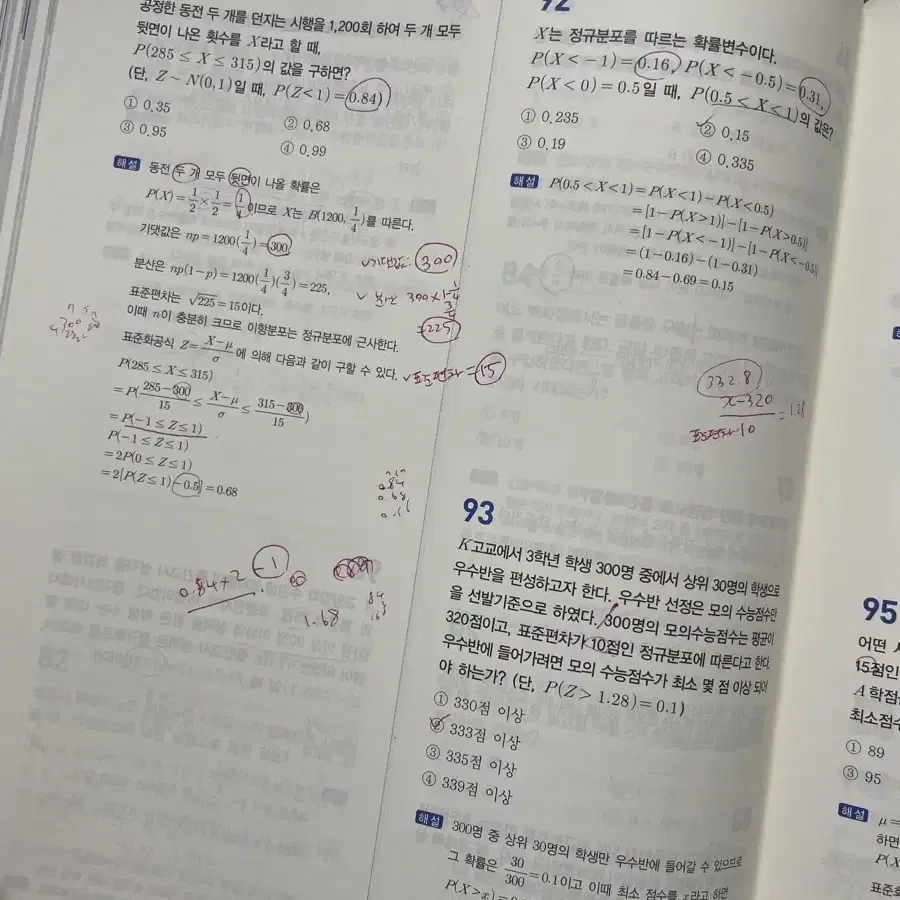 공정한 동전 두 개를 던지는 시행을 1,200회 하여 두 개 모두
뒷면이 나온 횟수를 X라고 할 때,
P(285 ≤ X ≤ 315)의 값을 구하면?
(단, Z ~ N(0,1)일 때, P(Z<1)=0.84)
① 0.35
② 0.68
③ 0.95
④ 0.99
해설 동전 두 개 모두 뒷면이 나올 확률은
P(X)=1/2×1/2=1/4이므로 X는 B(1200, 1/4)를 따른다.
기댓값은 np=1200(1/4)=300,
분산은 np(1-p)=1200(1/4)(3/4)=225,
표준편차는 √225=15이다.
이때 n이 충분히 크므로 이항분포는 정규분포에 근사한다.
표준화공식 Z=(X-μ)/σ에 의해 다음과 같이 구할 수 있다.
P(285 ≤ X ≤ 315)
=P((285-300)/15 ≤ (X-μ)/σ ≤ (315-300)/15)
=P(-1 ≤ Z ≤ 1)
P(-1 ≤ Z ≤ 1)
=2P(0 ≤ Z ≤ 1)
=2[P(Z ≤ 1)-0.5]=0.68
기댓값: 300
분산 300×
=225
표준편차=15
0.84
0.68
0.84+2 -1
1.68
92
X는 정규분포를 따르는 확률변수이다.
P(X<-1)=0.16, P(X<-0.5)=0.31,
P(X<0)=0.5일 때, P(0.5<X<1)의 값은?
① 0.235
② 0.15
③ 0.19
④ 0.335
해설 P(0.5<X<1)=P(X<1)-P(X<0.5)
=[1-P(X>1)]-[1-P(X>0.5)]
=[1-P(X<-1)]-[1-P(X<-0.5)]
=(1-0.16)-(1-0.31)
=0.84-0.69=0.15
332.8
x-320
표준편차 10
=1.28
93
K고교에서 3학년 학생 300명 중에서 상위 30명의 학생으로
우수반을 편성하고자 한다. 우수반 선정은 모의 수능점수만
을 선발기준으로 하였다. 300명의 모의수능점수는 평균이
320점이고, 표준편차가 10점인 정규분포에 따른다고 한다.
우수반에 들어가려면 모의 수능점수가 최소 몇 점 이상 되어
야 하는가? (단, P(Z>1.28)=0.1)
① 330점 이상
② 333점 이상
③ 335점 이상
④ 339점 이상
해설 300명 중 상위 30명의 학생만 우수반에 들어갈 수 있으므로
그 확률은 30/300=0.1이고 이때 최소 점수를 x라고 하면
P(X>x)=0.
95
어떤
15점인
A 학점
최소점수
① 89
③ 95
해설 μ=
하면
P(X
표준화